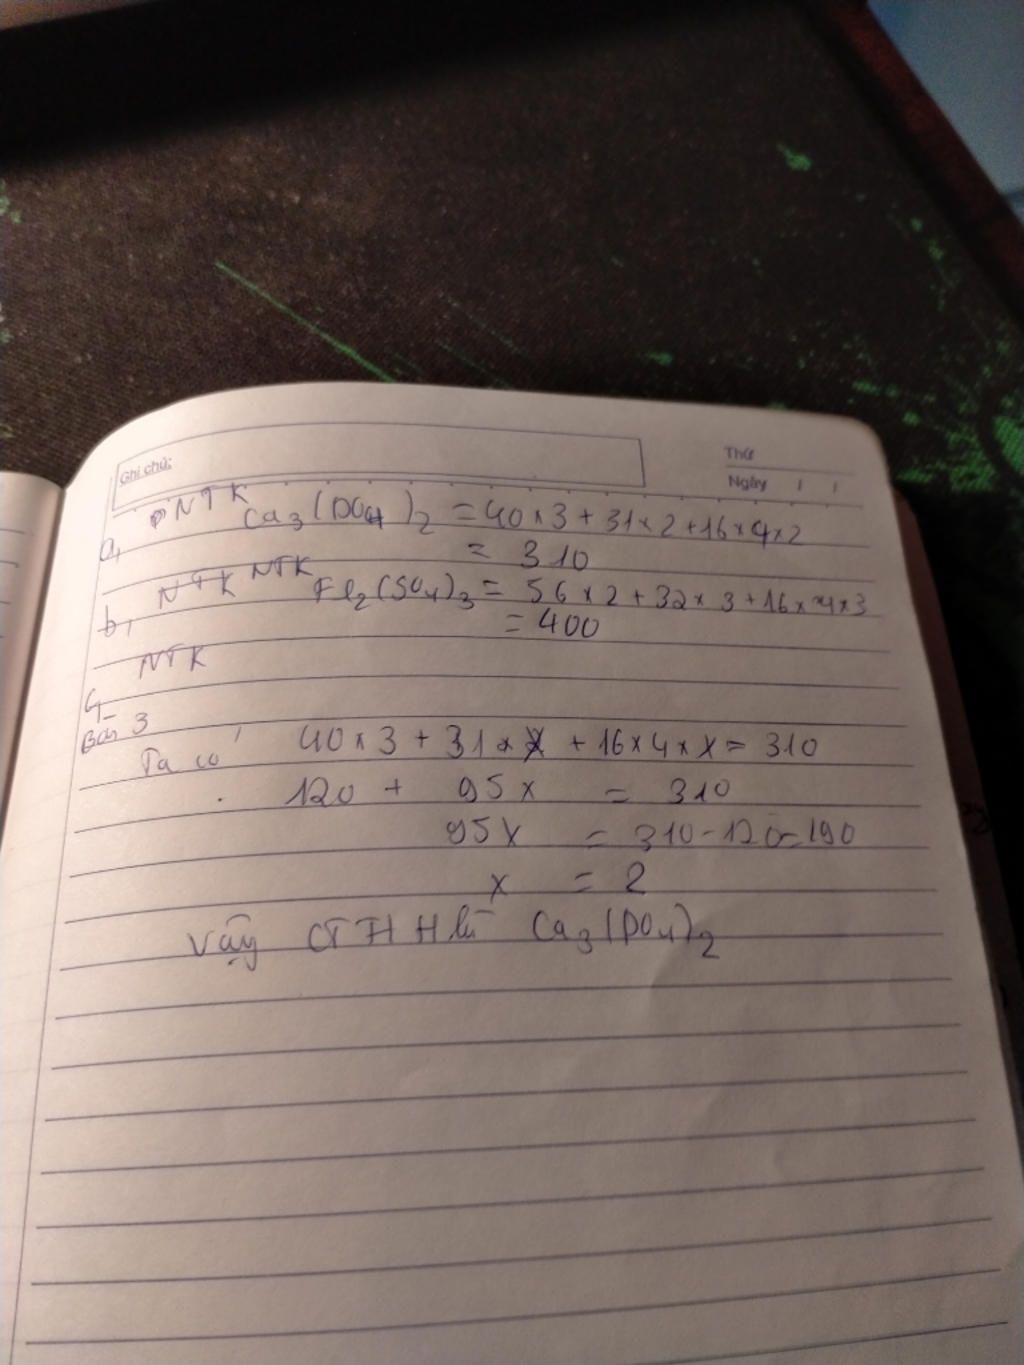 Ghi chú:
Thứ
Ngày / /
a, PNTK Ca3(PO4)2 = 40 x 3 + 31 x 2 + 16 x 4 x 2
= 310
b, NTK NTK Fe2(SO4)3 = 56 x 2 + 32 x 3 + 16 x 4 x 3
= 400
c, NTK
Bài 3
Ta có 40 x 3 + 31 x X + 16 x 4 x X = 310
120 + 95x = 310
95X = 310 - 120 = 190
x = 2
Vậy CTHH là Ca3(PO4)2